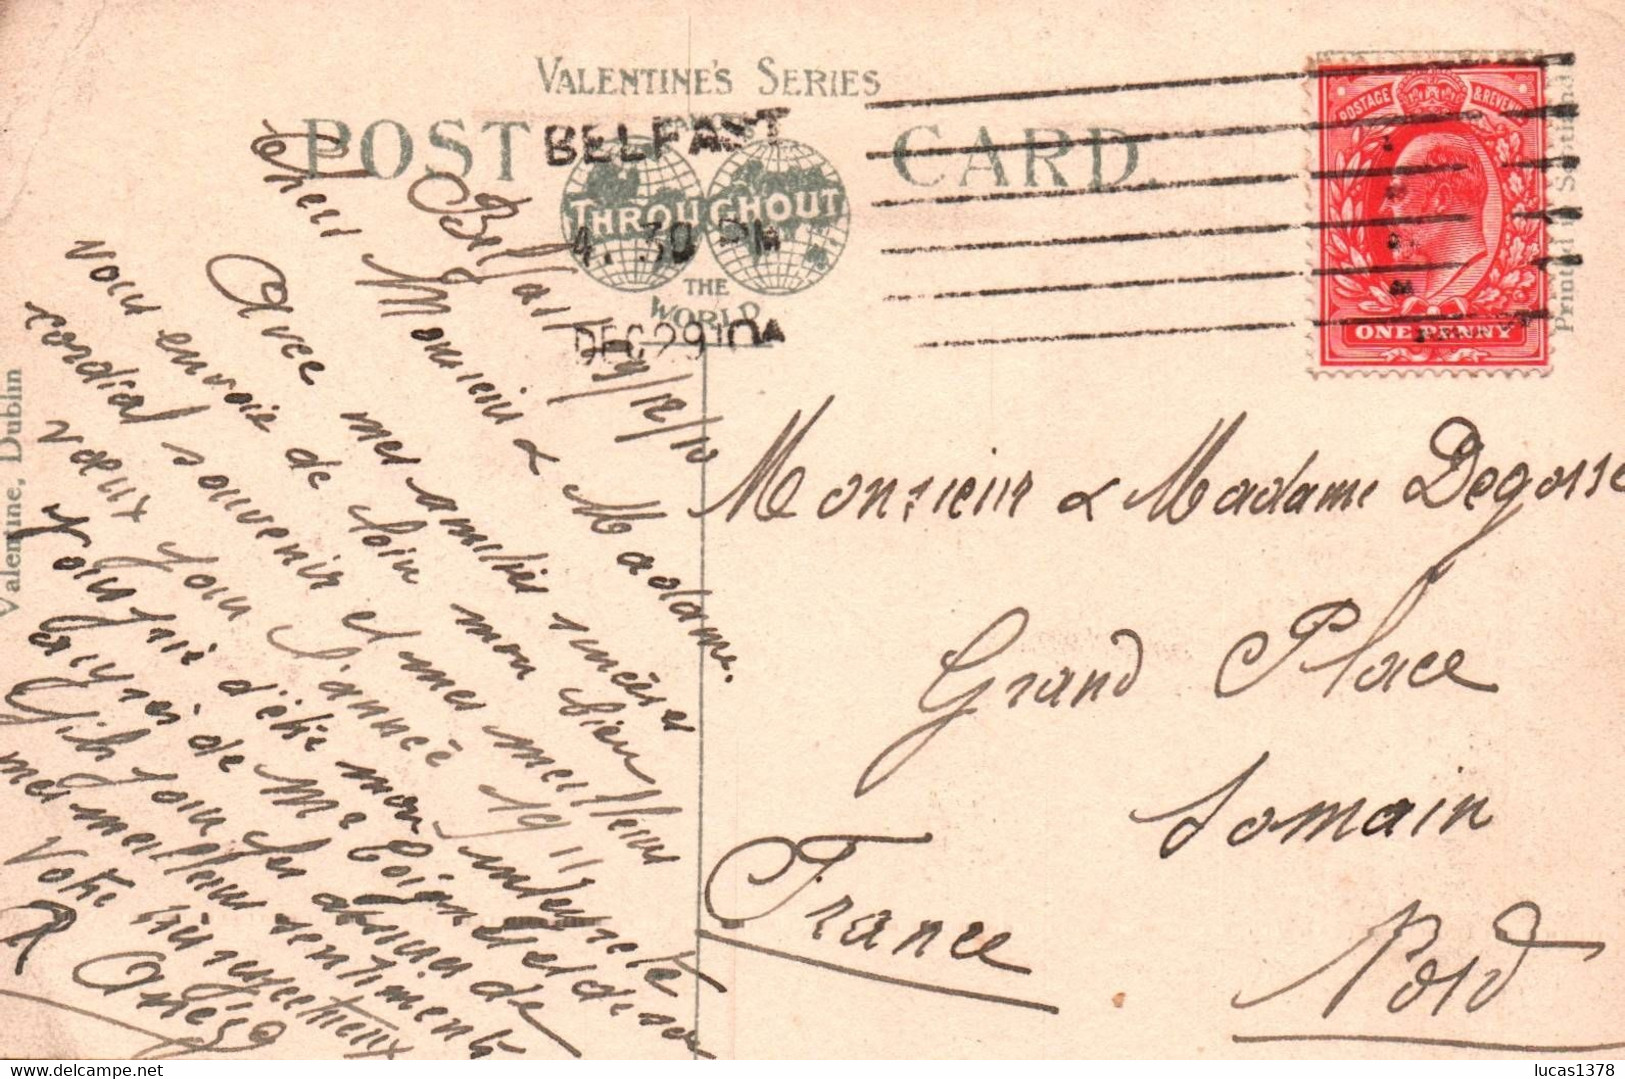 VALENTINE'S SERIES
POST CARD.
BELFAST
4. 30 PM
DEC 29 10
THROUGHOUT
THE
WORLD
POSTAGE & REVENUE
ONE PENNY
Printed in Scotland
Valentine, Dublin
Belfast 29/12/10
Chers Monsieur & Madame.
Avec mes amitiés sincères
vous envoie de loin mon bien
cordial souvenir et mes meilleurs
vœux pour l'année 1911
Vous prie d'être mon interprète
auprès de Me
pour les de
mes meilleurs sentiments
Votre très respectueux
R
Monsieur & Madame Degosse
Grand Place
Somain
Nord
France
lucas1378